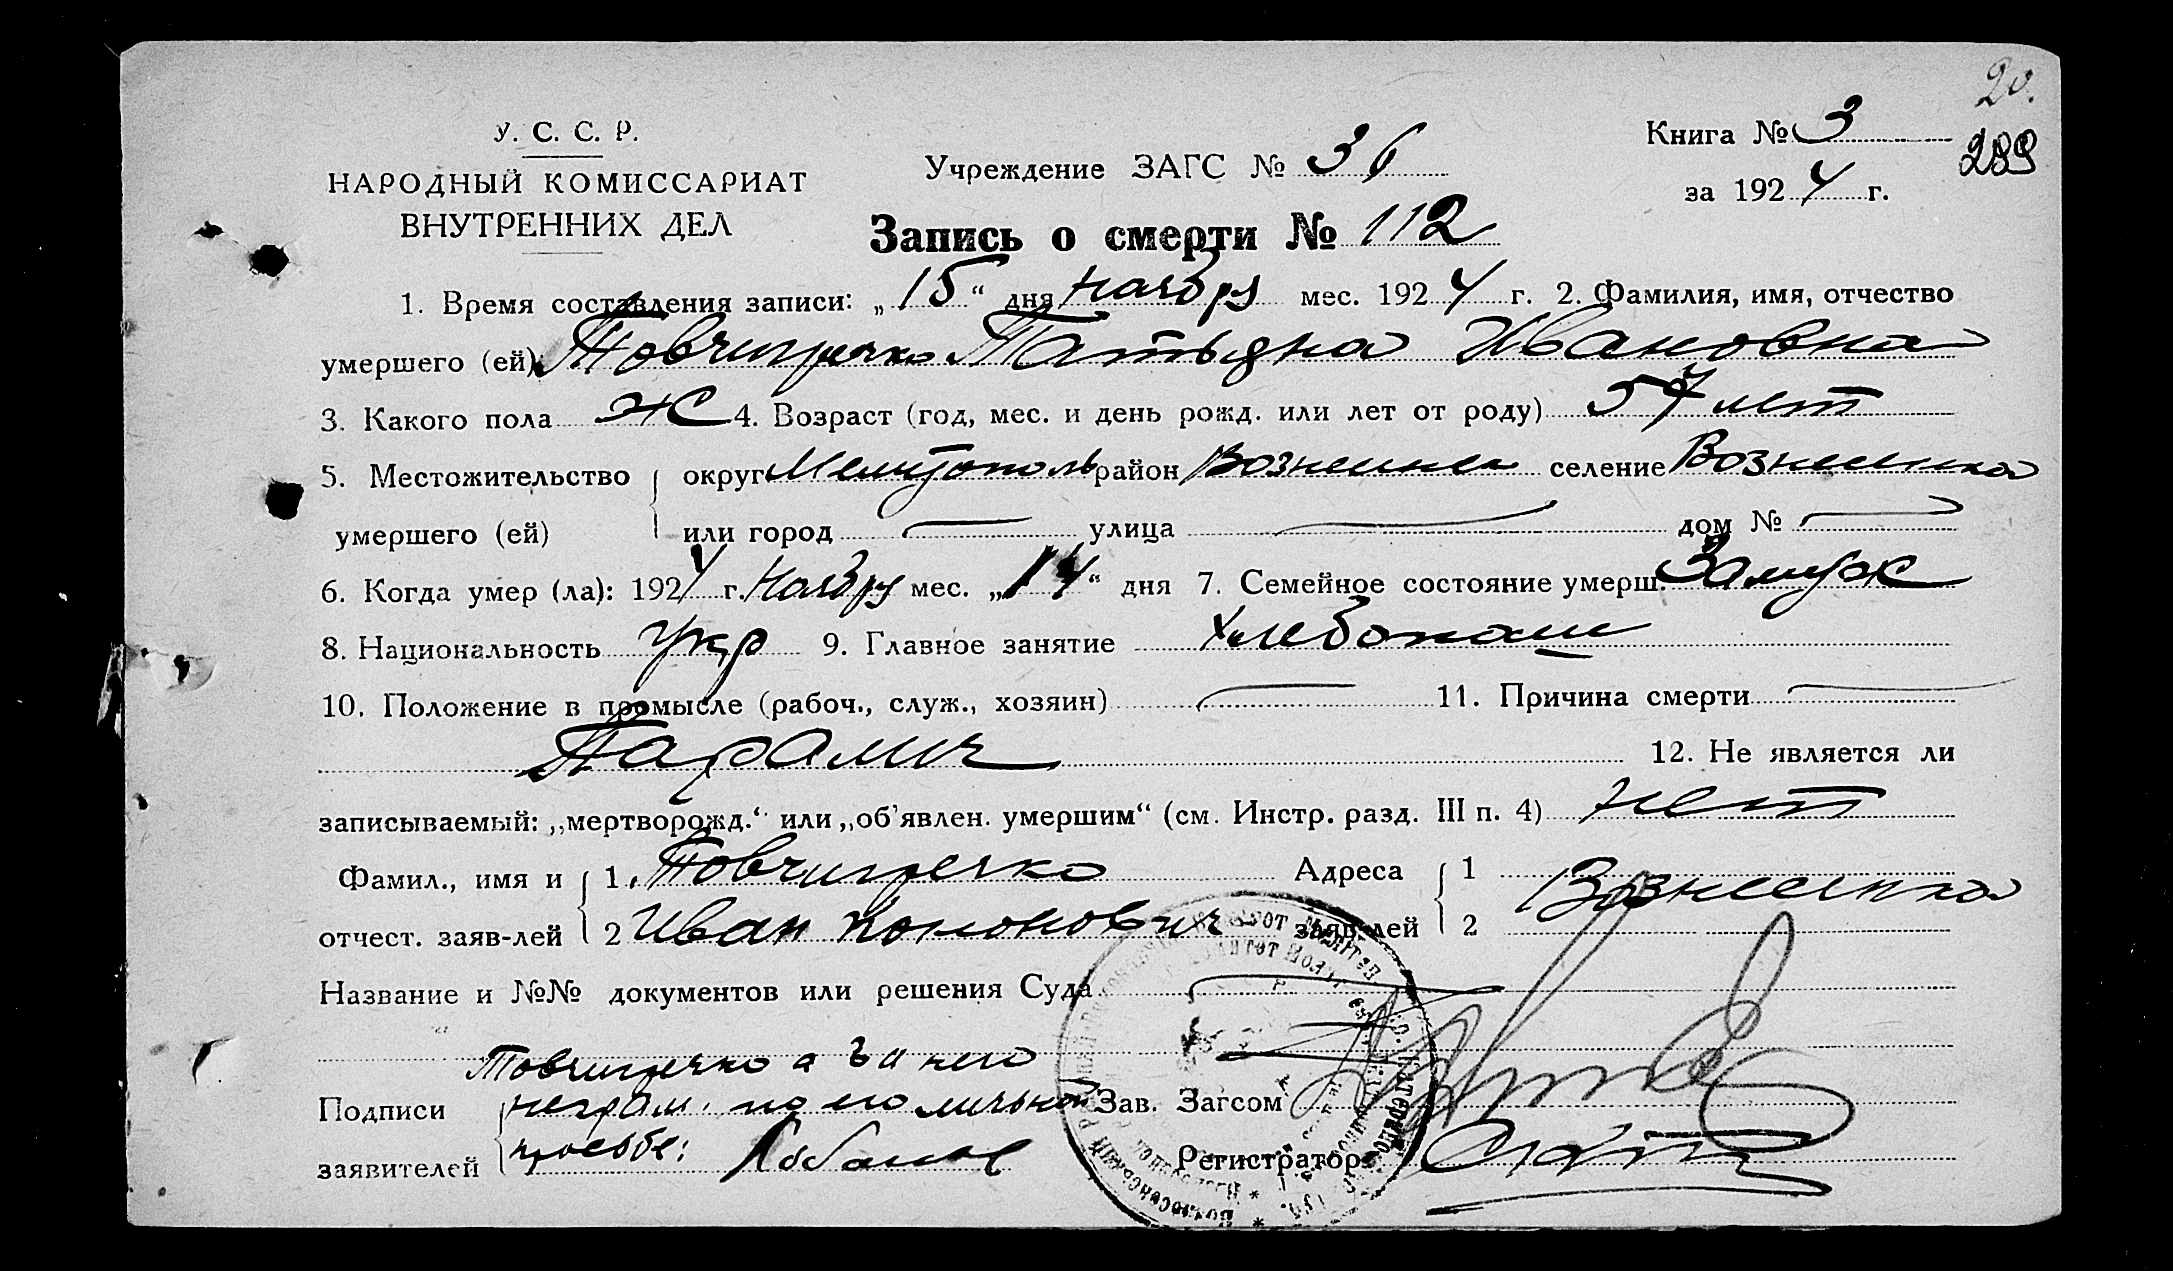 20.
289
У. С. С. Р.
НАРОДНЫЙ КОМИССАРИАТ
ВНУТРЕННИХ ДЕЛ
Учреждение ЗАГС № 36
Книга № 3
за 1924 г.
Запись о смерти № 112
1. Время составления записи: „15“ дня Ноября мес. 1924 г. 2. Фамилия, имя, отчество
умершего (ей): Татьяна Ивановна
3. Какого пола Ж 4. Возраст (год, мес. и день рожд. или лет от роду) 57 лет
5. Местожительство умершего (ей) округ Мелитополь район Вознесенск селение Вознесенка
или город — улица — дом № —
6. Когда умер (ла): 1924 г. Ноября мес. „14“ дня 7. Семейное состояние умерш. Замуж
8. Национальность Укр 9. Главное занятие Хлебопаш
10. Положение в промысле (рабоч., служ., хозяин) — 11. Причина смерти —
Паралич 12. Не является ли
записываемый: „мертворожд.“ или „об'явлен. умершим“ (см. Инстр. разд. III п. 4) нет
Фамил., имя и отчест. заяв-лей 1. Адреса заяв-лей 1 Вознесенка
2 Иван 2
Название и №№ документов или решения Суда
а за него
Подписи неграм. по его личной Зав. Загсом
заявителей просьбе: Регистратор